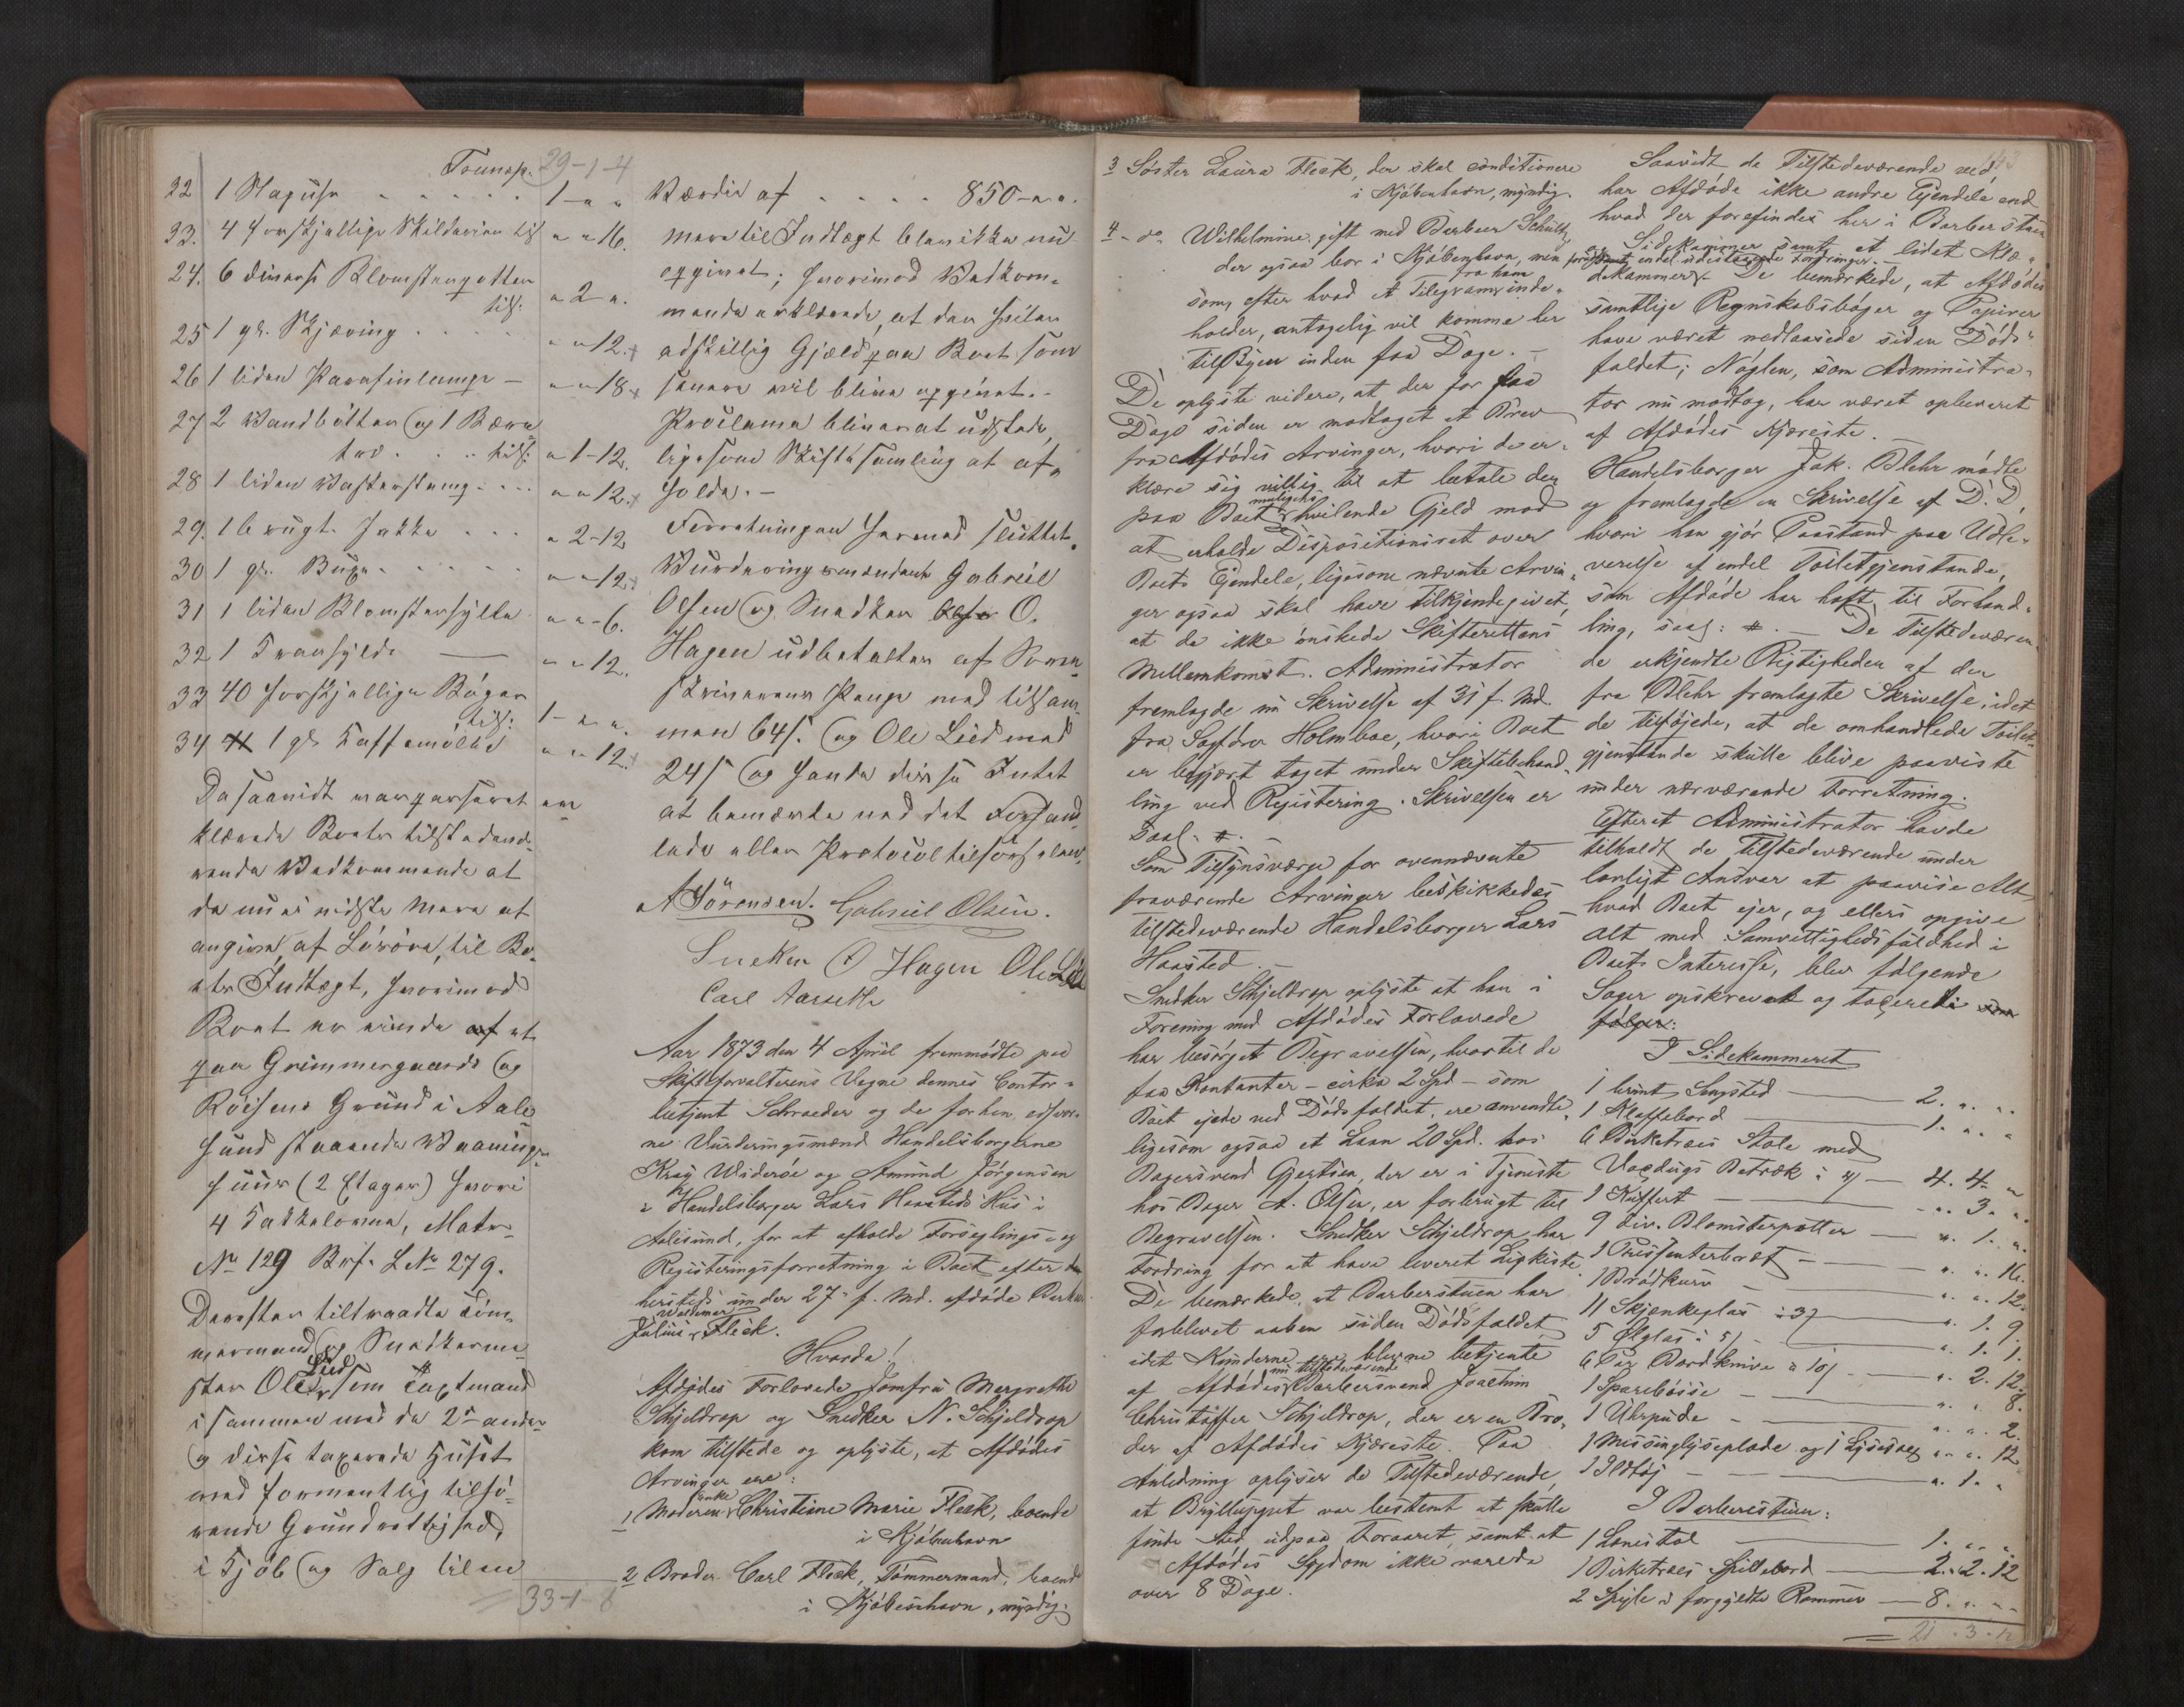 Transp. 29-1-4
22 1 Klapuhr . . . . . 1- " "
23. 4 forskjellige Skilderier til " " 16.
24. 6 diverse Blomsterpotter
tils: " 2 - ".
25 1 gl. Skjæring . . . . " " 12.
26 1 liden Parafinlampe - " " 18.
27 2 Vandbøtter og 1 Bære
træ . . . tils: " 1-12.
28 1 liden . . . " " 12.
29. 1 brugt Jakke . . . " 2-12
30 1 gl. Buxe . . . . . " " 12.
31 1 liden Blomsterhylde " " - 6.
32 1 Tranhylde — " " 12.
33 40 forskjellige Bøger
tils: 1- " ".
34 1 gl. Kaffemølle " " 12.
Da saavidt var passeret er-
klærede Boets tilstedevæ-
rende Vedkommende at
de nu ei vidste mere at
angive af Løsøre, til Bo-
ets Indtægt, hvorimod
Boet er eiende af et
paa Grimmergaards og
Røisens Grund i Aale-
sund staaende Vaanings-
huus (2 Etager) hvori
4 Kakkelovne, Matr.
No 129 Brf. L No 279.
Derefter tiltraadte Tøm-
mermand og Snedkerme-
ster Ole Lied som Taxtmand
i sammen med de 2de andre
og disse taxerede Huset
med formentlig tilhø-
rende Grundrettighed
i Kjøb og Salg til en
33-1-8
Værdie af . . . . 850 - " ".
mere til Indtægt blev ikke nu
opgivet; hvorimod Vedkom-
mende erklærede, at der hviler
adskillig Gjæld paa Boet som
senere vil blive opgivet. -
Proclama bliver at udstede,
ligesom Skiftesamling at af-
holde. -
Forretningen hermed sluttet.
Vurderingsmændene Gabriel
Olsen og Snedker O.
Hagen udbetaltes af Sorен-
skriverens Penge med tilsam-
men 64 s. og Ole Lied med
24 s og havde disse Intet
at bemærke ved det Forhand-
lede eller Protocoltilførselen.
A Sörensen. Gabriel Olsen.
Sneker O Hagen Ole Lied
Carl Aarseth
Aar 1873 den 4 April fremmødte paa
Skifteforvalterens Vegne dennes Contor-
betjent Schroeder og de forhen edsvor-
ne Vurderingsmænd Handelsborgerne
Krog Widerøe og Amund Jørgensen
i Handelsborger Lars Haasteds Hus i
Aalesund, for at afholde Forseglings- og
Registeringsforretning i Boet efter den
hersteds under 27de f. Md. afdøde Barber
Julius Waldemar Fleck.
Hvorda!
Afdødes Forlovede Jomfru Margrethe
Schjeldrop og Snedker N. Schjeldrop
kom tilstede og oplyste, at Afdødes
Arvinger ere:
1 Moderen Enke Christine Marie Fleck, boende
i Kjøbenhavn
2 Broder Carl Fleck, Tømmermand, boende
i Kjøbenhavn, myndig.
3 Søster Laura Fleck, der skal conditionere
i Kjøbenhavn, myndig.
4 - do Wilhelmine, gift med Barbeer Schultz
der ogsaa bor i Kjøbenhavn, men
som, efter hvad et Telegram fra ham inde-
holder, antagelig vil komme her
til Byen inden faa Dage. -
De oplyste videre, at der for faa
Dage siden er modtaget et Brev
fra Afdødes Arvinger, hvori de er-
klære sig villig til at betale den
paa Boet muligens hvilende Gjeld mod
at erholde Dispositionsret over
Boets Ejendele, ligesom nævnte Arvin-
ger ogsaa skal have tilkjendegivet,
at de ikke ønskede Skifterettens
Mellemkomst. Administrator
fremlagde nu Skrivelse af 31 f. Md.
fra Sagfører Holmboe, hvori Boet
er begjært taget under Skiftebehand-
ling ved Registering. Skrivelsen er
saal. #. -
Som Tilsynsværge for ovennævnte
fraværende Arvinger beskikkedes
tilstedeværende Handelsborger Lars
Haasted. -
Snedker Schjeldrop oplyste at han i
Forening med Afdødes Forlovede
har besørget Begravelsen, hvortil de
faa Kontanter - cirka 2 Spd - som
Boet ejede ved Dødsfaldet, ere anvendte,
ligesom ogsaa et Laan 20 Spd. hos
Bagersvend Gjertsen, der er i Tjeneste
hos Bager A. Olsen, er forbrugt til
Begravelsen. Snedker Schjeldrop har
Fordring for at have leveret Ligkiste
De bemærkede, at Barberstuen har
forblevet aaben siden Dødsfaldet,
idet Kunderne ere blevne betjente
af Afdødes nu tilstedeværende Barbersvend Joachim
Christoffer Schjeldrop, der er en Bro-
der af Afdødes Kjæreste. Paa
Anledning oplyser de Tilstedeværende,
at Brylluppet var bestemt at skulle
finde Sted udpaa Foraaret, samt at
Afdødes Sygdom ikke varede
over 8 Dage.
Saavidt de Tilstedeværende ved,
har Afdøde ikke andre Ejendele end
hvad der forefindes her i Barberstuen
og Sidekammer samt et lidet Klæ-
dekammer endel udestaaende Fordringer. De bemærkede, at Afdødes
samtlige Regnskabsbøger og Papirer
have været nedlaasede siden Døds-
faldet; Nøglen, som Administra-
tor nu modtog, har været opbevaret
af Afdødes Kjæreste. -
Handelsborger Jak. Blehr mødte
og fremlagde en Skrivelse af D. D,
hvori han gjør Paastand paa Udle-
verelse af endel Toiletgjenstande,
som Afdøde har haft til Forhand-
ling, saal: #. - De Tilstedeværen-
de erkjendte Rigtigheden af den
fra Blehr fremlagte Skrivelse, idet
de tilføjede, at de omhandlede Toilet-
gjenstande skulle blive paaviste
under nærværende Forretning.
Efteret Administrator havde
tilholdt de Tilstedeværende under
lovligt Ansvar at paavise Alt,
hvad Boet ejer, og ellers opgive
Alt med Samvittighedsfuldhed i
Boets Interesse, blev følgende
Sager opskrevet og taxerede som
følger:
I Sidekammeret
1 brunt Sengsted — 2. " . "
1 Klaffebord — 1. " . "
6 Birketræs Stole med
Voxdugs Betræk à 4/ — 4. 4. "
1 Kuffert — " . 3. " .
9 div. Blomsterpotter — " . 1. " .
1 Præsenterbræt — " . " . 16.
1 Brødkurv — " . " . 12.
11 Skjenkeglas à 3/ — " . 1. 9.
5 Ølglas à 5/ — " . 1. 1.
6 Par Bordknive à 10/ — " . 2. 12.
1 Sparebøsse — " . " . 8.
1 Uhrpude — " . " . 2.
1 Messinglyseplade og 1 Lysesax " . " . 12
1 Ildtøj — " . 1. "
I Barberstuen:
1 Lænestol — 1. " . "
1 Birketræs Spillebord — 2. 2. 12
2 Spejle i forgyldte Rammer — 8. " . "
21 . 3 . 12